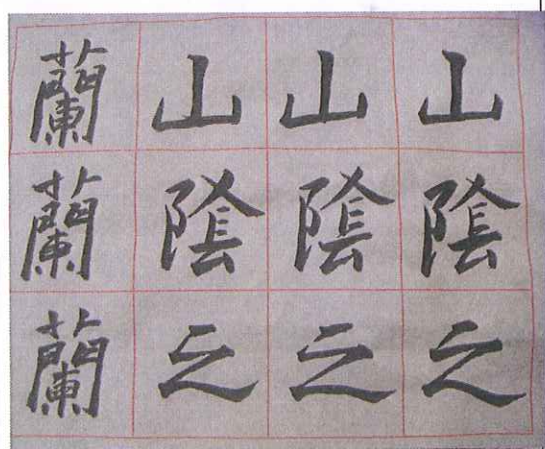 山陰之
山陰之
山陰之
蘭蘭蘭